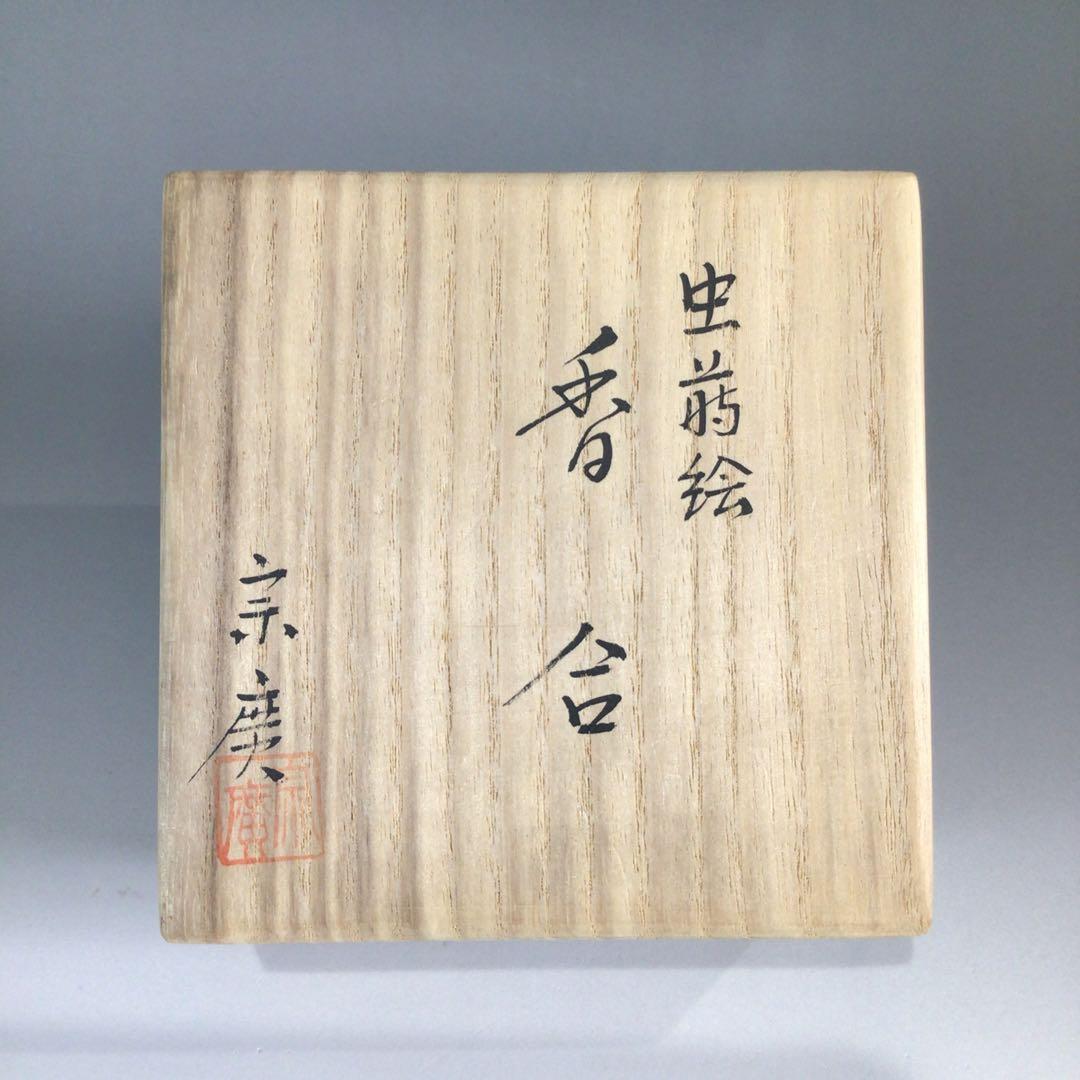 虫蒔絵
香合
宗廣
宗廣